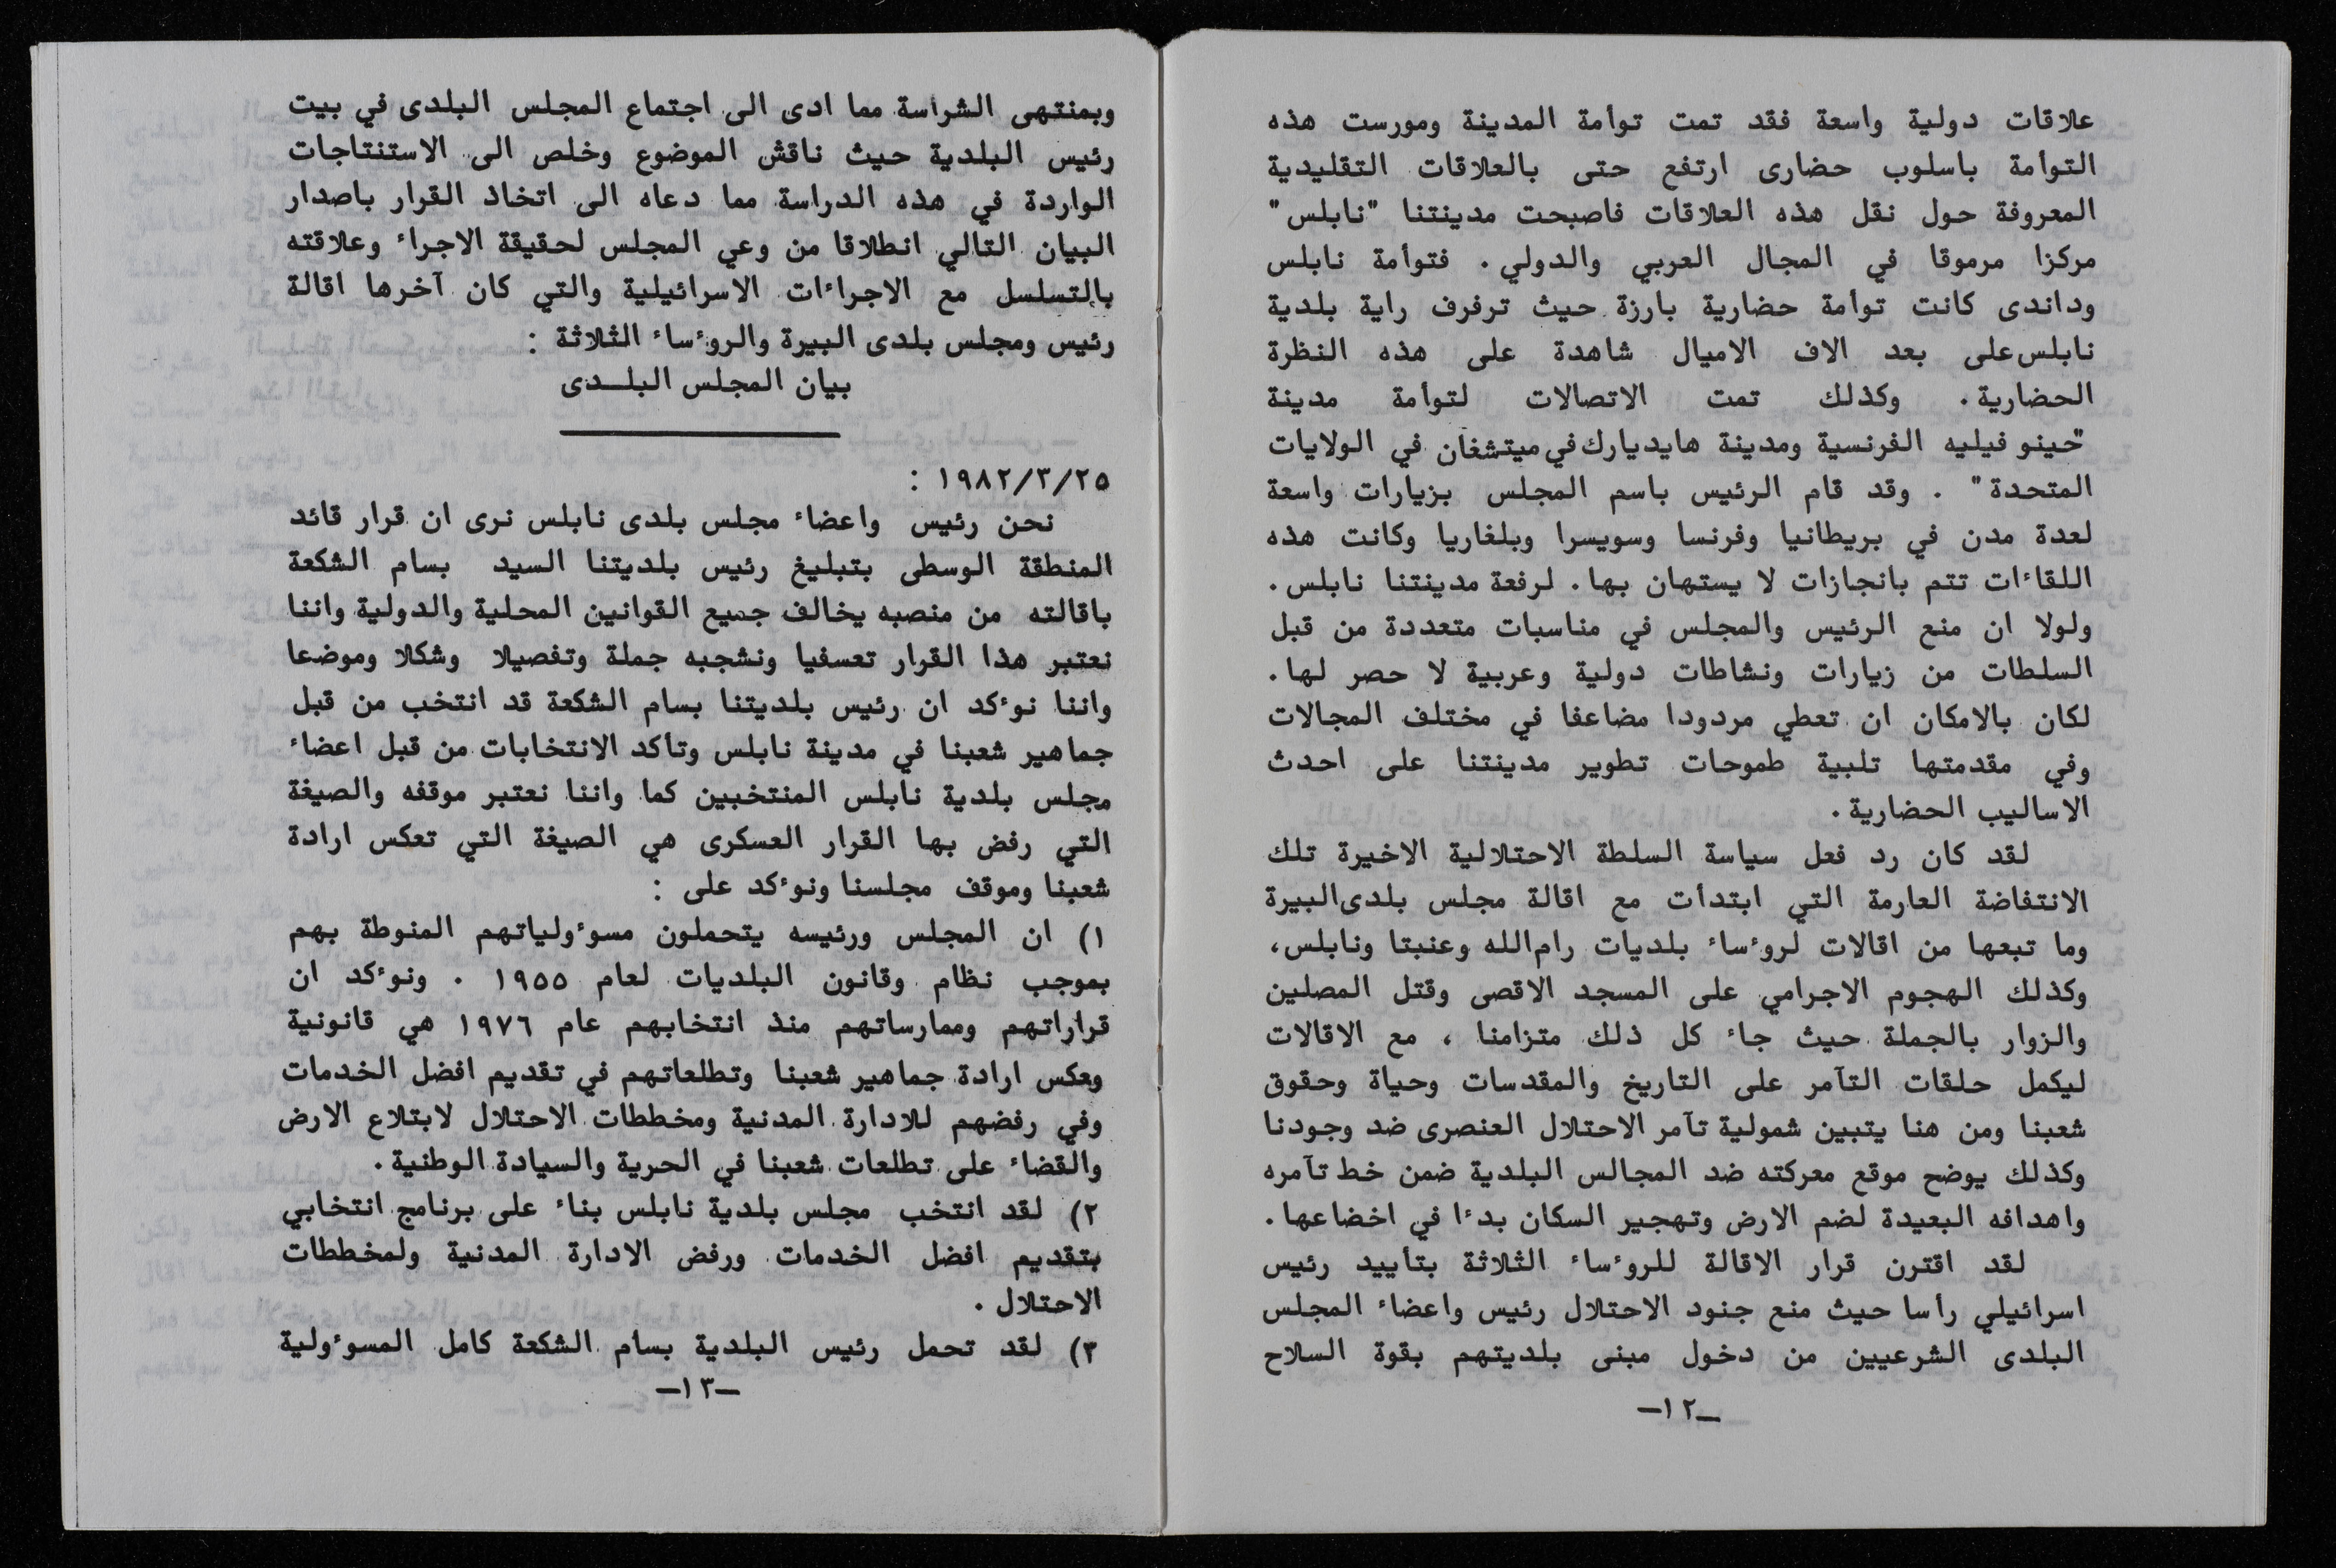 علاقات دولية واسعة فقد تمت توأمة المدينة ومورست هذه
التوأمة باسلوب حضارى ارتفع حتى بالعلاقات التقليدية
المعروفة حول نقل هذه العلاقات فاصبحت مدينتنا "نابلس"
مركزا مرموقا في المجال العربي والدولي . فتوأمة نابلس
وداندى كانت توأمة حضارية بارزة حيث ترفرف راية بلدية
نابلس على بعد الاف الاميال شاهدة على هذه النظرة
الحضارية . وكذلك تمت الاتصالات لتوأمة مدينة
"حينو فيليه الفرنسية ومدينة هايديارك في ميتشغان في الولايات
المتحدة" . وقد قام الرئيس باسم المجلس بزيارات واسعة
لعدة مدن في بريطانيا وفرنسا وسويسرا وبلغاريا وكانت هذه
اللقاءات تتم بانجازات لا يستهان بها . لرفعة مدينتنا نابلس .
ولولا ان منع الرئيس والمجلس في مناسبات متعددة من قبل
السلطات من زيارات ونشاطات دولية وعربية لا حصر لها .
لكان بالامكان ان تعطي مردودا مضاعفا في مختلف المجالات
وفي مقدمتها تلبية طموحات تطوير مدينتنا على احدث
الاساليب الحضارية .
لقد كان رد فعل سياسة السلطة الاحتلالية الاخيرة تلك
الانتفاضة العارمة التي ابتدأت مع اقالة مجلس بلدى البيرة
وما تبعها من اقالات لروءساء بلديات رام الله وعنبتا ونابلس،
وكذلك الهجوم الاجرامي على المسجد الاقصى وقتل المصلين
والزوار بالجملة حيث جاء كل ذلك متزامنا ، مع الاقالات
ليكمل حلقات التآمر على التاريخ والمقدسات وحياة وحقوق
شعبنا ومن هنا يتبين شمولية تآمر الاحتلال العنصرى ضد وجودنا
وكذلك يوضح موقع معركته ضد المجالس البلدية ضمن خط تآمره
واهدافه البعيدة لضم الارض وتهجير السكان بدءا في اخضاعها .
لقد اقترن قرار الاقالة للروءساء الثلاثة بتأييد رئيس
اسرائيلي رأسا حيث منع جنود الاحتلال رئيس واعضاء المجلس
البلدى الشرعيين من دخول مبنى بلديتهم بقوة السلاح
—١٢—
وبمنتهى الشراسة مما ادى الى اجتماع المجلس البلدى في بيت
رئيس البلدية حيث ناقش الموضوع وخلص الى الاستنتاجات
الواردة في هذه الدراسة مما دعاه الى اتخاذ القرار باصدار
البيان التالي انطلاقا من وعي المجلس لحقيقة الاجراء وعلاقته
بالتسلسل مع الاجراءات الاسرائيلية والتي كان آخرها اقالة
رئيس ومجلس بلدى البيرة والروءساء الثلاثة :
بيان المجلس البلـــدى
١٩٨٢/٣/٢٥ :
نحن رئيس واعضاء مجلس بلدى نابلس نرى ان قرار قائد
المنطقة الوسطى بتبليغ رئيس بلديتنا السيد بسام الشكعة
باقالته من منصبه يخالف جميع القوانين المحلية والدولية واننا
نعتبر هذا القرار تعسفيا ونشجبه جملة وتفصيلا وشكلا وموضعا
واننا نوءكد ان رئيس بلديتنا بسام الشكعة قد انتخب من قبل
جماهير شعبنا في مدينة نابلس وتأكد الانتخابات من قبل اعضاء
مجلس بلدية نابلس المنتخبين كما واننا نعتبر موقفه والصيغة
التي رفض بها القرار العسكرى هي الصيغة التي تعكس ارادة
شعبنا وموقف مجلسنا ونوءكد على :
١) ان المجلس ورئيسه يتحملون مسوءولياتهم المنوطة بهم
بموجب نظام وقانون البلديات لعام ١٩٥٥ . ونوءكد ان
قراراتهم وممارساتهم منذ انتخابهم عام ١٩٧٦ هي قانونية
وعكس ارادة جماهير شعبنا وتطلعاتهم في تقديم افضل الخدمات
وفي رفضهم للادارة المدنية ومخططات الاحتلال لابتلاع الارض
والقضاء على تطلعات شعبنا في الحرية والسيادة الوطنية .
٢) لقد انتخب مجلس بلدية نابلس بناء على برنامج انتخابي
بتقديم افضل الخدمات ورفض الادارة المدنية ولمخططات
الاحتلال .
٣) لقد تحمل رئيس البلدية بسام الشكعة كامل المسوءولية
—١٣—